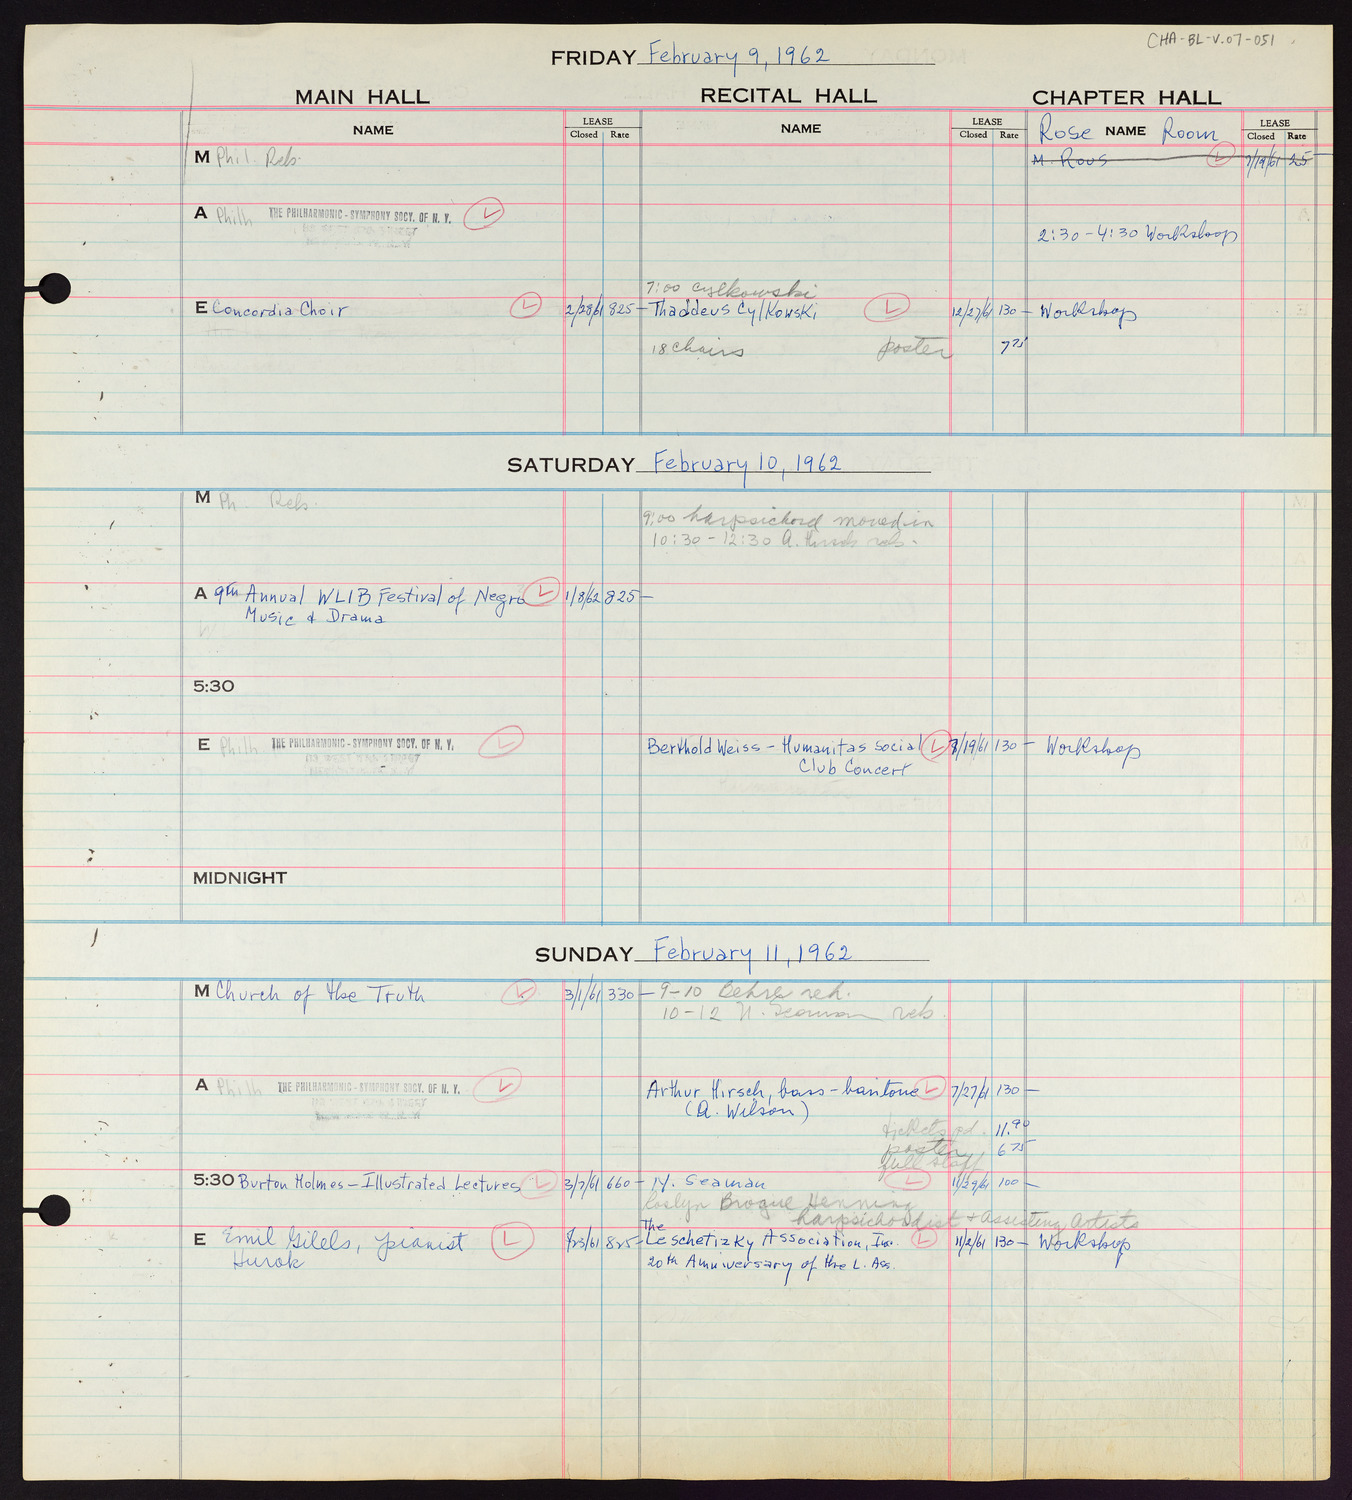 CHA-BL-V.07-051
FRIDAY February 9, 1962
MAIN HALL RECITAL HALL CHAPTER HALL
NAME LEASE Closed Rate NAME LEASE Closed Rate Rose NAME Room LEASE Closed Rate
M Phil. Reh. M. Rous L 7/19/61 25-
A Philh THE PHILHARMONIC-SYMPHONY SOCY. OF N. Y. L
2:30-4:30 Workshop
7:00 Cylkowski
E Concordia Choir L 2/28/61 825- Thaddeus Cylkowski L 12/27/61 130- Workshop
18 chairs poster 7 75
SATURDAY February 10, 1962
M Ph. Reh.
9:00 harpsichord moved in
10:30-12:30 A. Hirsch reh.
A 9th Annual WLIB Festival of Negro L 1/8/62 825-
Music & Drama
5:30
E Philh THE PHILHARMONIC-SYMPHONY SOCY. OF N. Y. L Berthold Weiss - Humanitas Social L 7/19/61 130- Workshop
Club Concert
MIDNIGHT
SUNDAY February 11, 1962
M Church of the Truth L 3/1/61 330- 9-10 Behre reh.
10-12 N. Seaman reh.
A Philh THE PHILHARMONIC-SYMPHONY SOCY. OF N. Y. L Arthur Hirsch, bass-baritone L 7/27/61 130-
(A. Wilson)
tickets pd. 11.90
poster 6 75
full staff
5:30 Burton Holmes - Illustrated Lectures L 3/7/61 660- N. Seaman L 11/29/61 100-
Roslyn Brogue Henning
harpsichordist & Assisting Artists
E Emil Gilels, pianist L 825- The Leschetizky Association, Inc. L 11/2/61 130- Workshop
Hurok 20th Anniversary of the L. Ass.